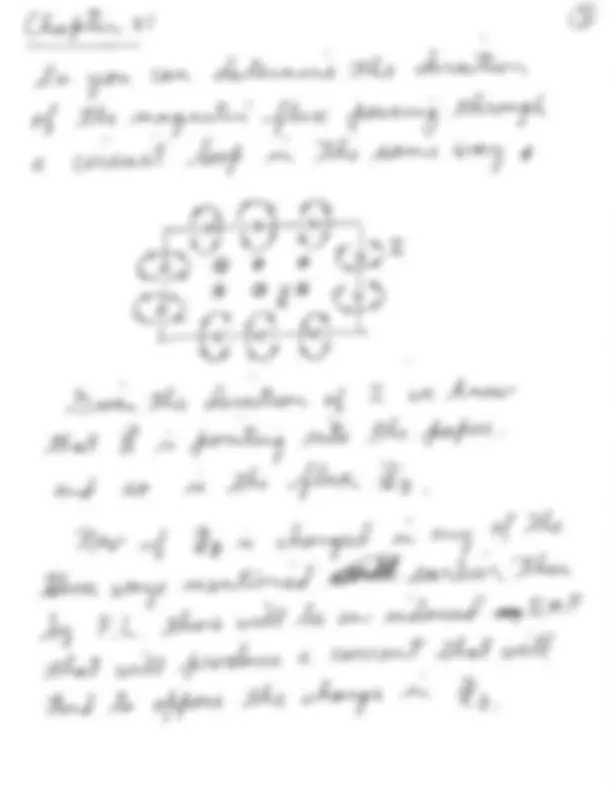 Chapter
So you can determine the direction
of the magnetic flux passing through
a current loop in the same way
I
Given the direction of I we know
that B is pointing into the paper
and so is the flux ΦB.
Now if ΦB is changed in any of the
three ways mentioned earlier then
by F.L. there will be an induced EMF
that will produce a current that will
tend to oppose the change in ΦB.